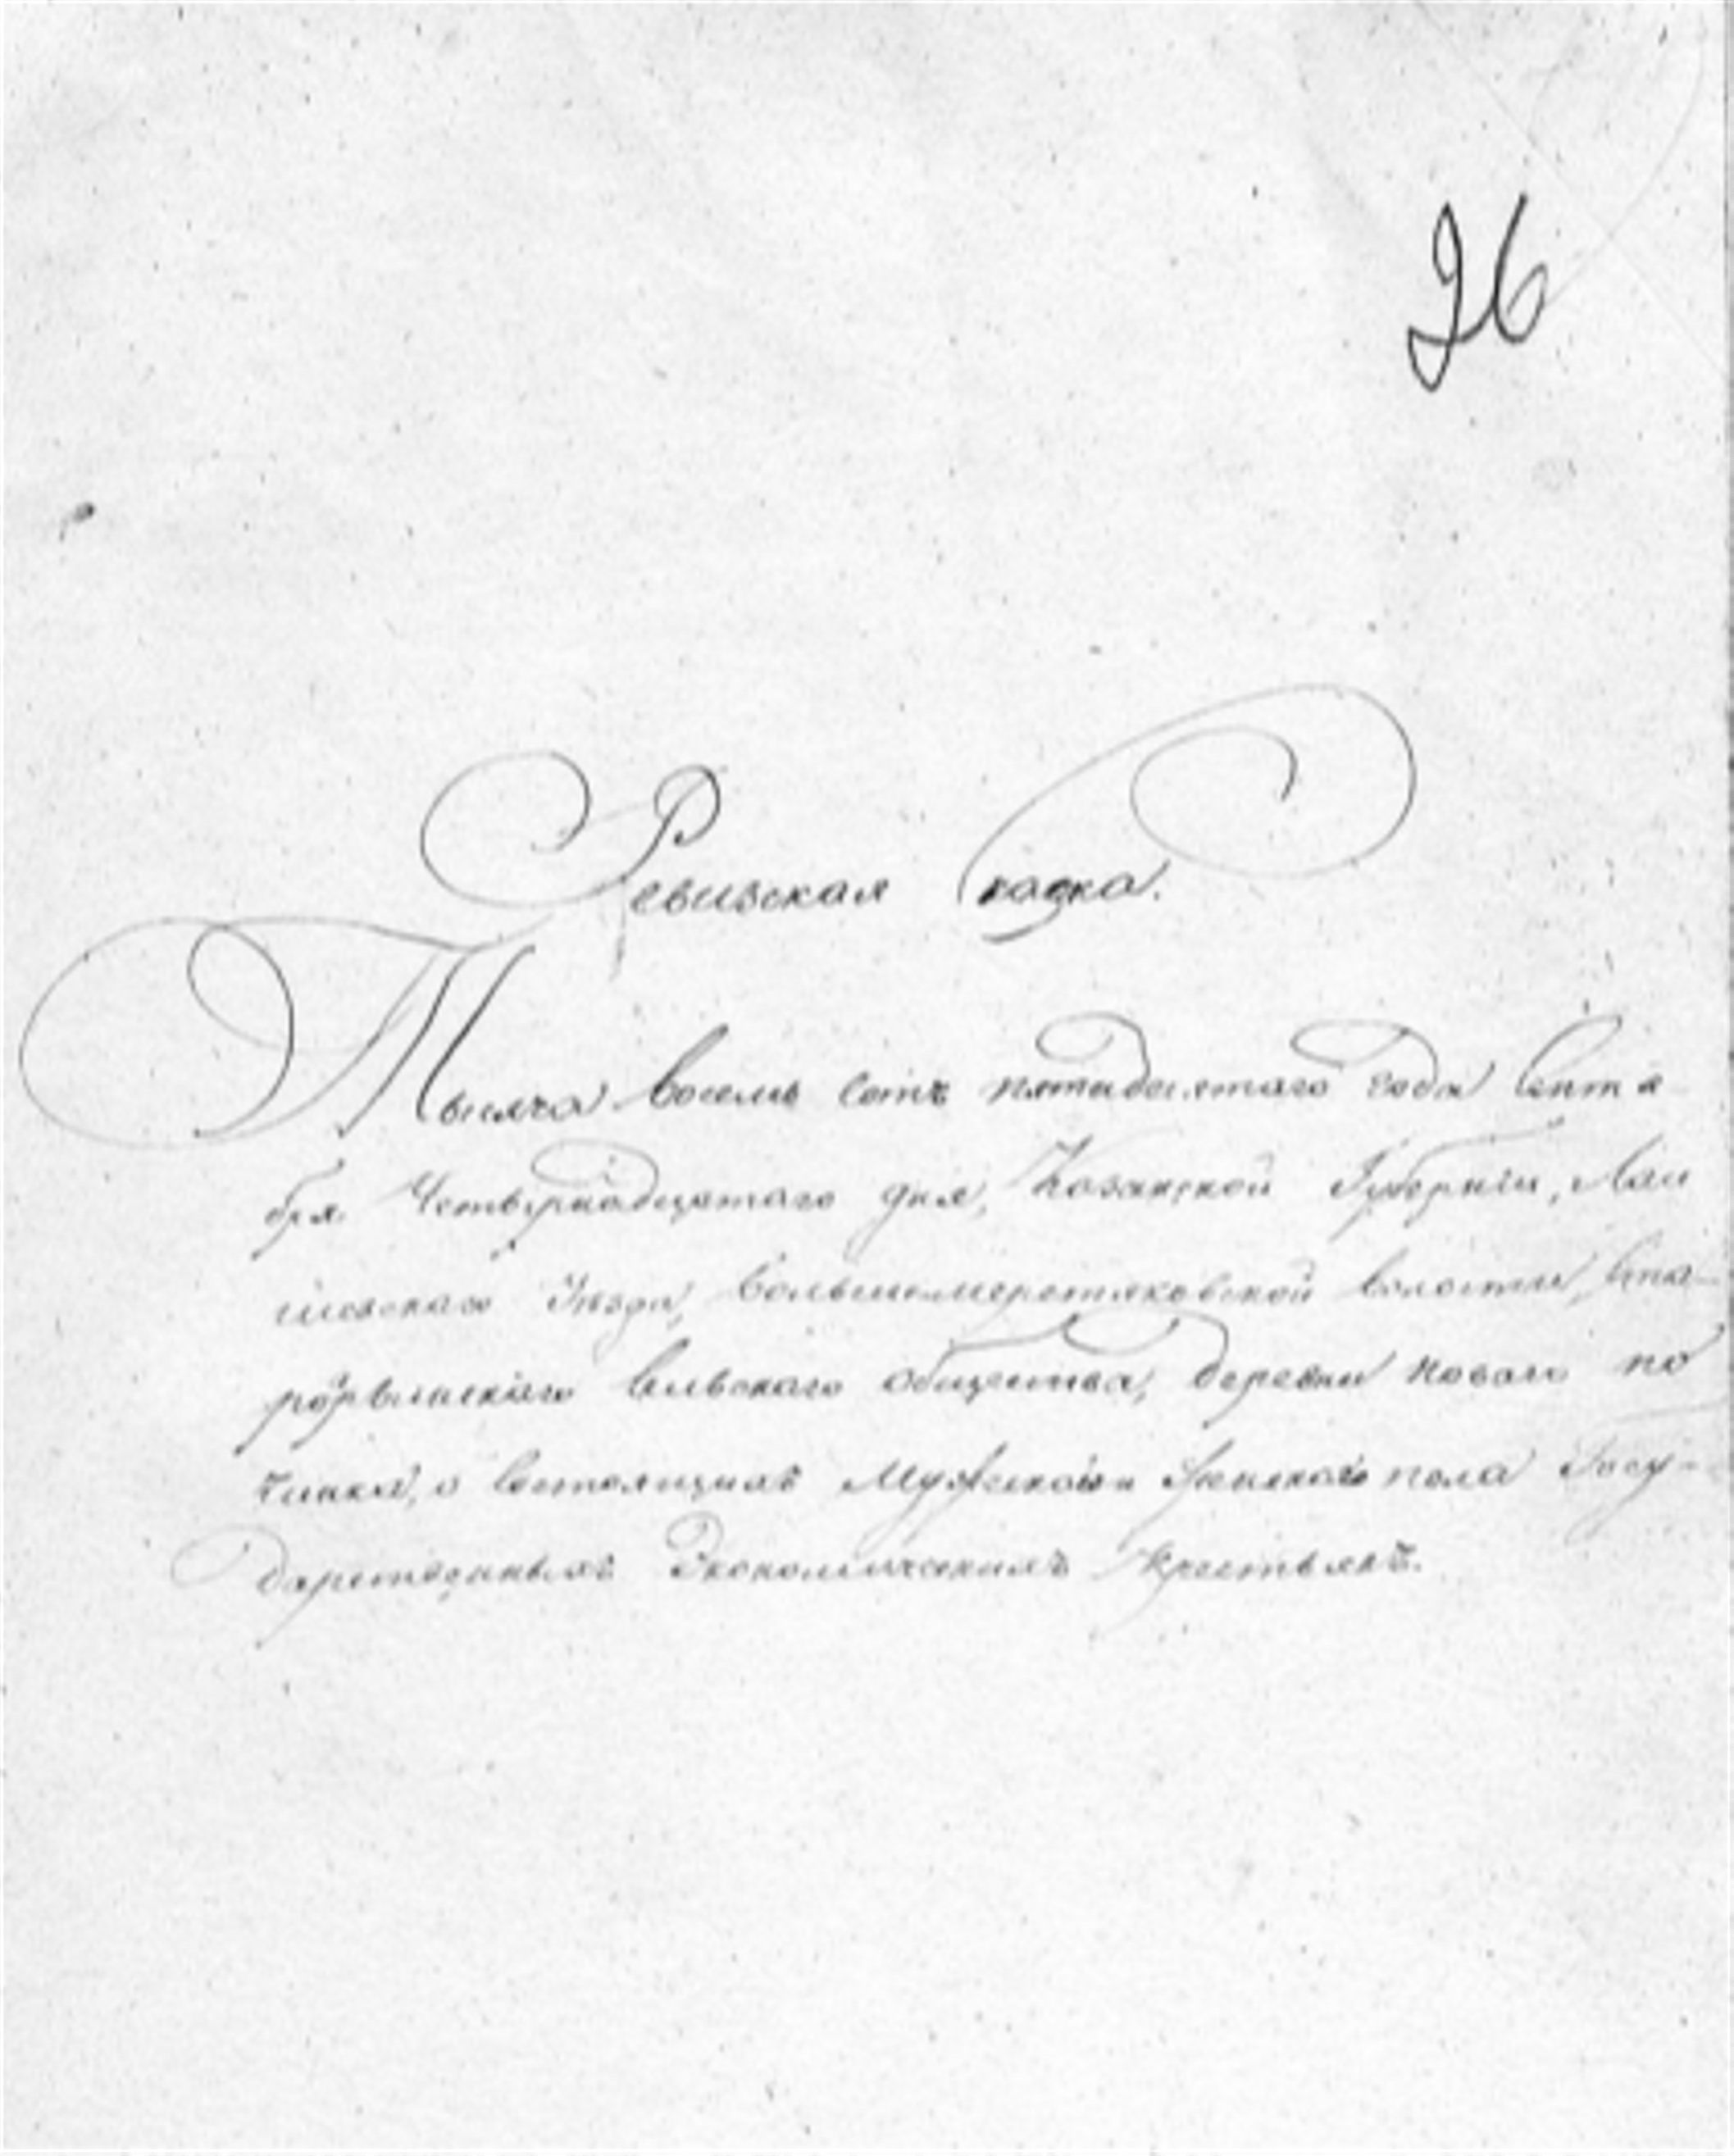 26
Ревизская Сказка.
Тысяча восемь сотъ пятидесятаго года Сентя
бря Четвернадцатаго дня, Казанской Губерніи, Лаи
шевскаго Уезда, Большемеретяковской волости, Ста-
рорыльскаго Сельскаго общества, деревни Новаго по
чинка, о Состоящихъ Мужескаго и Женскаго пола Госу-
дарственныхъ Экономическихъ крестьянъ.